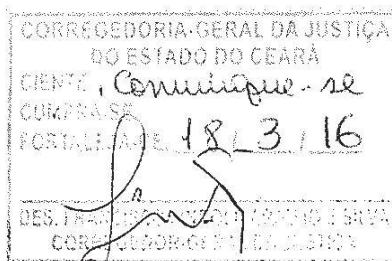 CORREGEDORIA-GERAL DA JUSTIÇA
DO ESTADO DO CEARÁ
CIENTE, Comunique-se
CUMPRA-SE
FORTALEZA-CE, 18 / 3 / 16
DES. SILVA
CORREGEDOR-GERAL DA JUSTIÇA